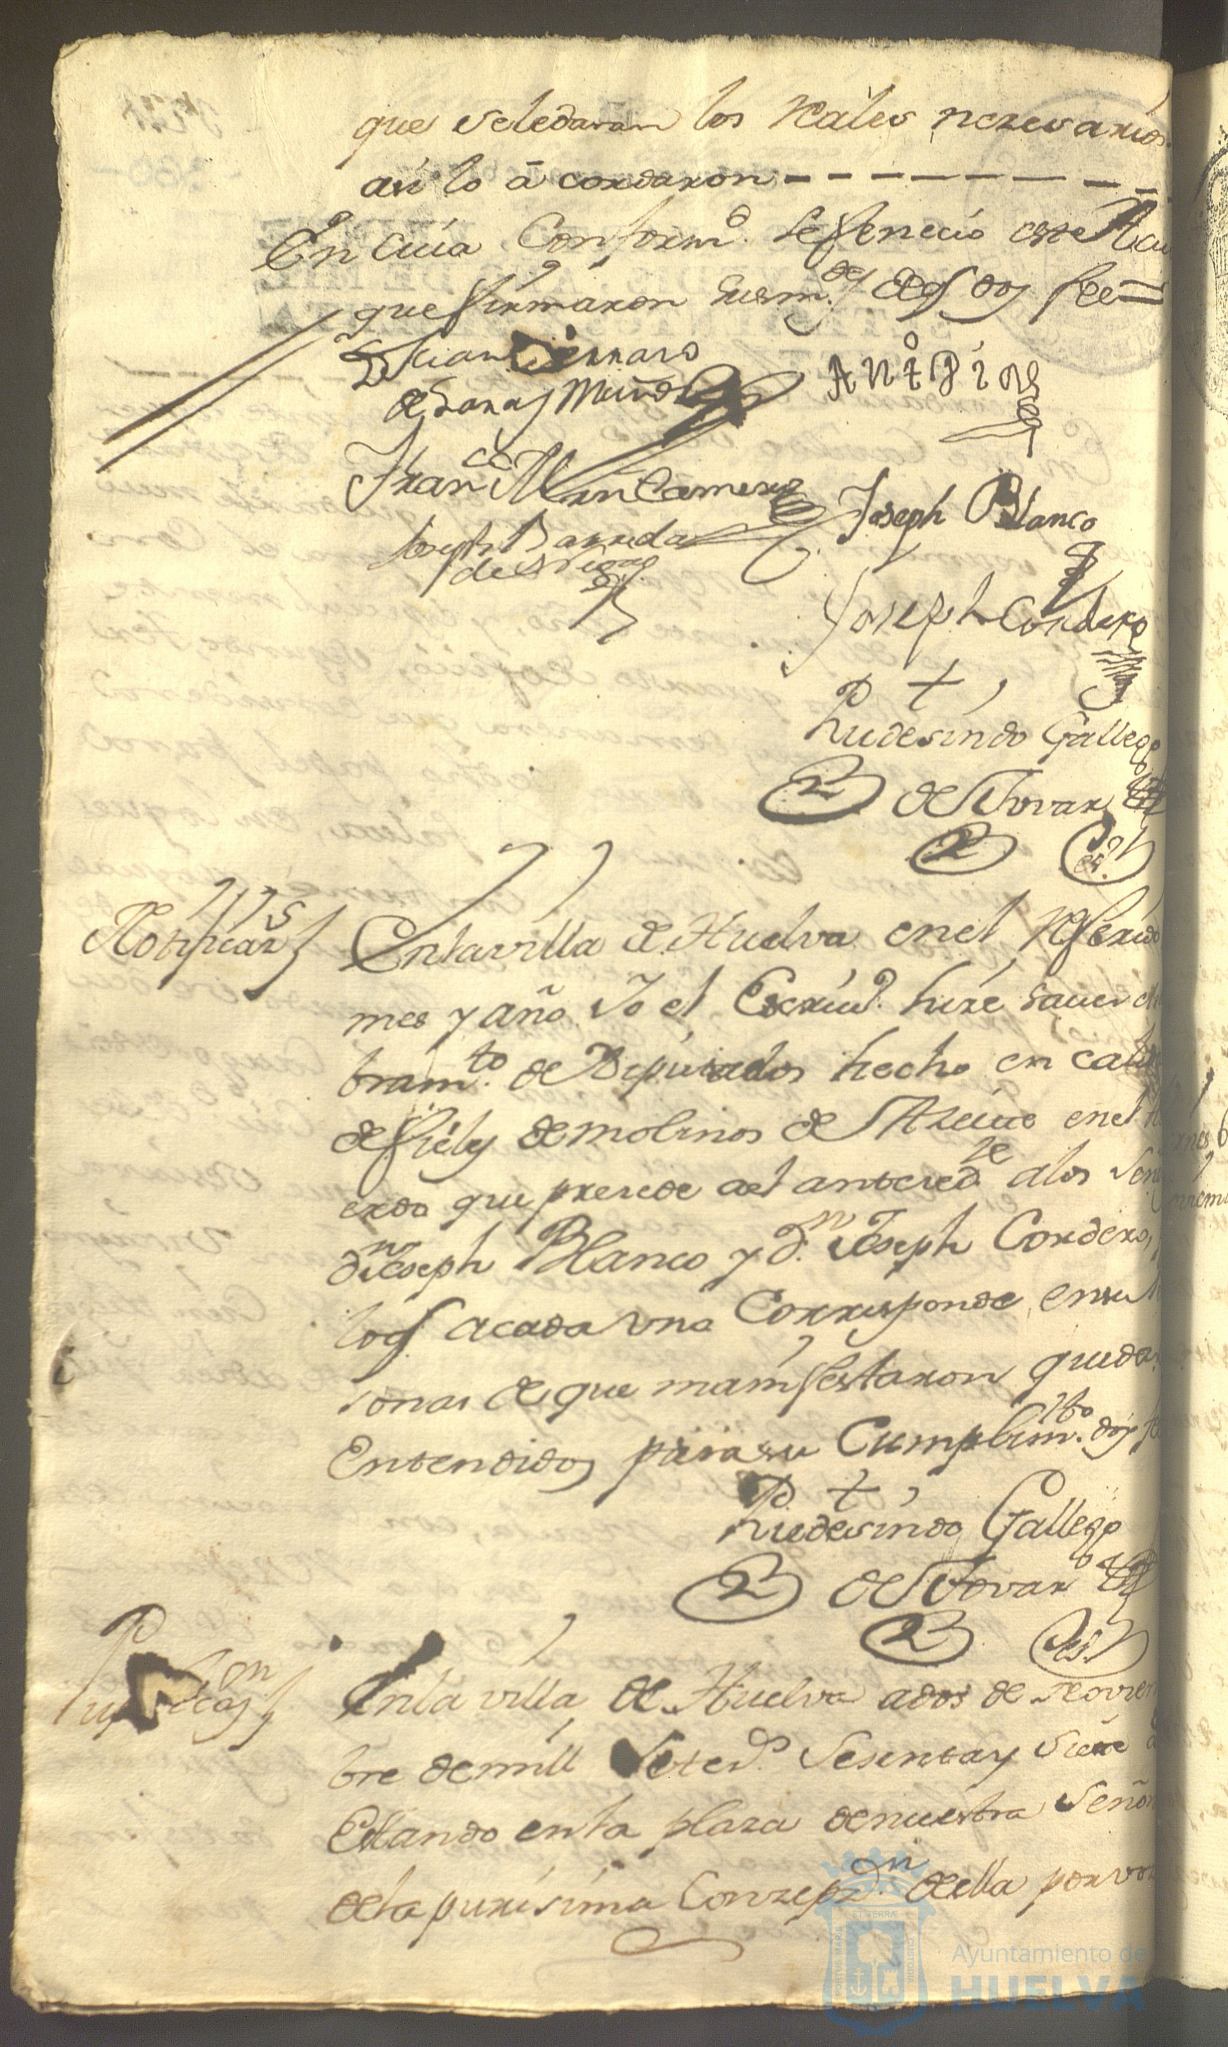 que seledaran los Reales nezesarios
asi lo âcordaron
En cuia Conformd. sefenecio este Acu
que firmaron susmds. deq doy fee=
de Sanas
ANtPin
Franco Mrn Camero
Joseph Barreda
Joseph Blanco
Joseph Cordero
Rudesindo Gallego
de Tovar
es.
Notificaz
Enlavilla de Huelva enel Referido
mes y año Yo el Escriv. hize saver el
bramto. de Diputados hecho en calid
defieles demolinos de Azeite enel
erdo que prezede al antezedte alos Señ
dn Joseph Blanco y dn. Joseph Cordero,
loq acada una Corresponde ensu
sonas de que manifestaron queda
Entendidos para su Cumplimto. doy f
Rudesindo Gallego
de Tovar
es.
on
Enla villa de Huelva ados de Noviem
bre demill Seted. Sesenta y siete
Estando enla plaza denuestra Señor
dela purisima Conzepzn. deella por vo
Ayuntamiento de
HUELVA